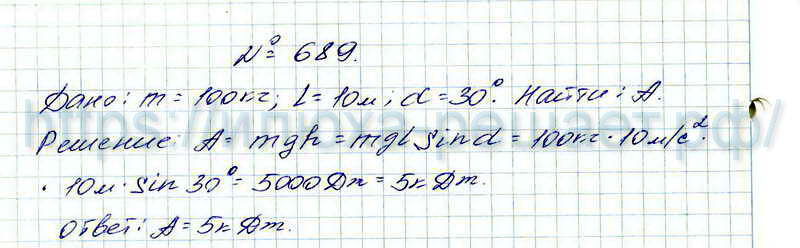 № 689.
Дано: m = 100кг; l = 10м; α = 30°. Найти: A.
Решение: A = mgh = mgl sin α = 100кг · 10 м/с² ·
· 10м · sin 30° = 5000 Дж = 5к Дж.
Ответ: A = 5к Дж.
https://илюха.решает.рф/